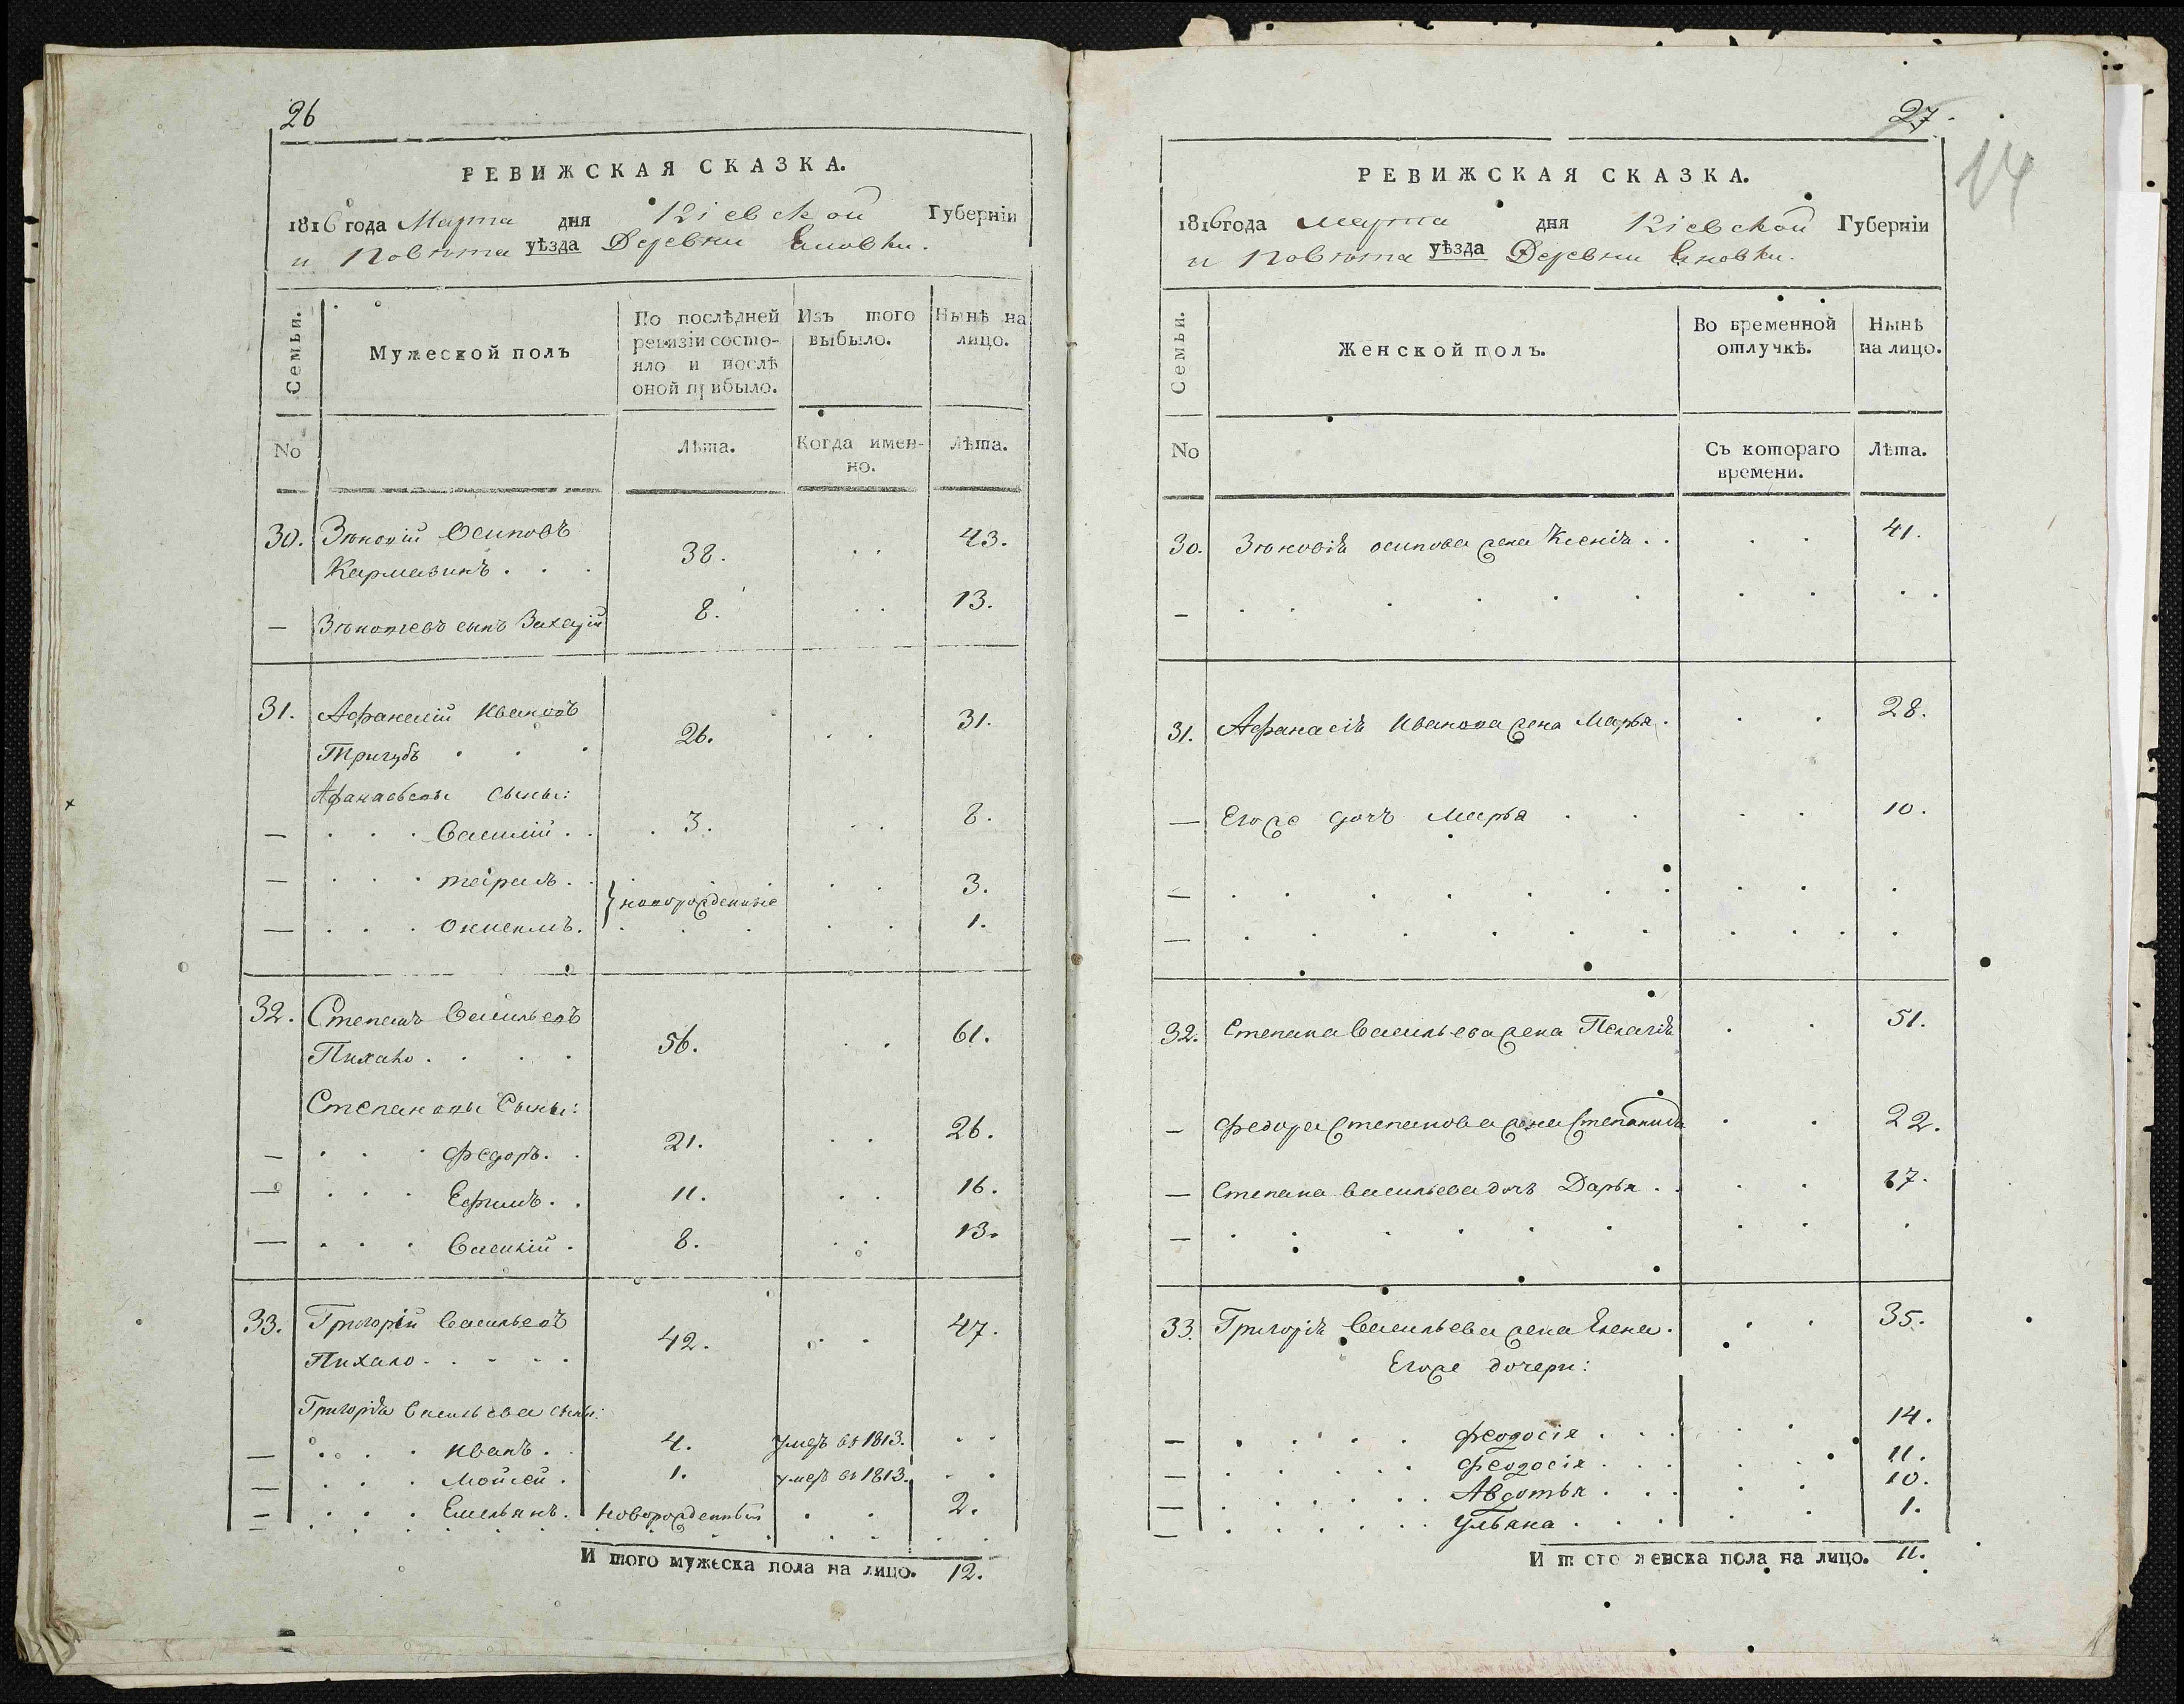 26
РЕВИЖСКАЯ СКАЗКА.
1816 года Марта дня Кіевской Губерніи
и Повѣта уѣзда Деревни Еновки.
Семьи.
Мужеской полъ
По послѣдней
ревизіи состо-
яло и послѣ
оной прибыло.
Изъ того
выбыло.
Нынѣ на
лицо.
No
Лѣта.
Когда имен-
но.
Лѣта.
30. Зѣновій Осиповъ
Кармазинъ . . . 38. . . 43.
— Зѣновіевъ сынъ Захарій 8. . . 13.
31. Афанасій Ивановъ
Тригубъ . . . 26. . . 31.
Афанасьевы сыны:
— . . . Василій . . . 3. . . 8.
— . . . . . . 3.
— . . . новорожденніе . . 1.
32. Степанъ Васильевъ
Пихало . . . . 56. . . 61.
Степановы Сыны:
— . . . Федоръ. . 21. . . 26.
— . . . Ефимъ. . 11. . . 16.
— . . . Василій . 8. . . 13.
33. Григорій Васильевъ
Пихало . . . . . 42. . . 47.
Григорія Васильева сыны:
— . . . Иванъ . 4. умеръ въ 1813. . .
— . . . Мойсей . 1. умеръ въ 1813. . .
— . . . Емельянъ. Новорожденный . . 2.
И того мужеска пола на лицо. 12.
27.
14
РЕВИЖСКАЯ СКАЗКА.
1816 года Марта дня Кіевской Губерніи
и Повѣта уѣзда Деревни Еновки.
Семьи.
Женской полъ.
Во временной
отлучкѣ.
Нынѣ
на лицо.
No
Съ котораго
времени.
Лѣта.
30. Зѣновія осипова жена Ксенія . . . . 41.
31. Афанасія Иванова жена Марья . . . 28.
— Егоже дочь Марья . . . . 10.
32. Степана Васильева жена Пелагія . . 51.
— Федора Степанова жена Степанида . . 22.
— Степана Васильева дочь Дарья . . . . 17.
33. Григорія Васильева жена Елена . . . 35.
Егоже дочери:
— . . . . Феодосія . . . . . 14.
— . . . . . Феодосія . . . . . 11.
— . . . . . Авдотья . . . . . 10.
— . . . . . Ульяна . . . . . 1.
И того женска пола на лицо. 11.